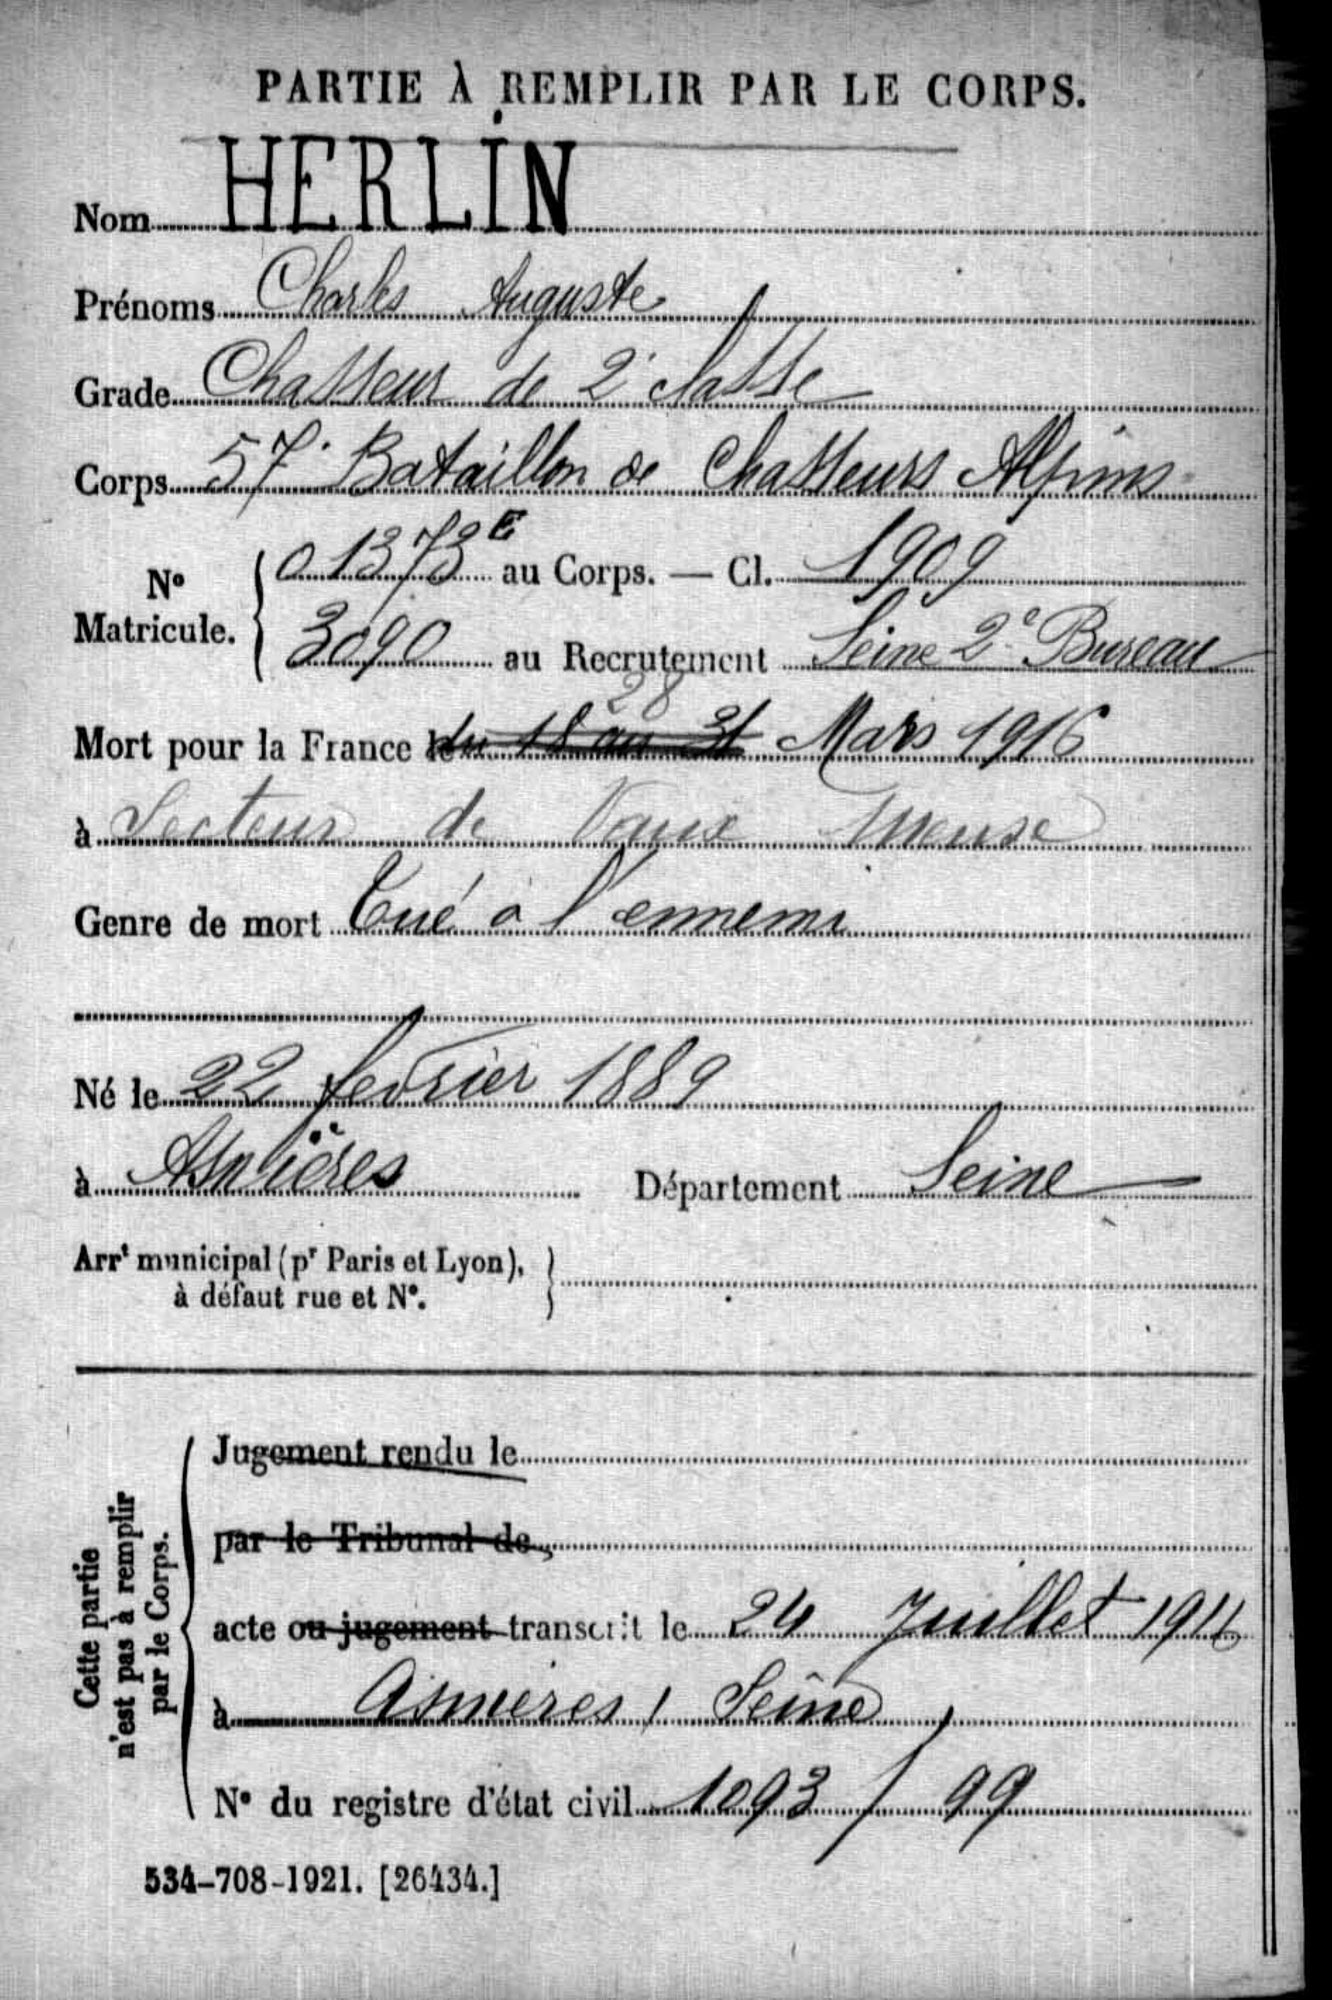 PARTIE À REMPLIR PAR LE CORPS.
Nom HERLIN
Prénoms Charles Auguste
Grade Chasseur de 2e classe
Corps 57e Bataillon de Chasseurs Alpins
No Matricule. 01373E au Corps. — Cl. 1909
3090 au Recrutement Seine 2e Bureau
28
Mort pour la France le du 18 au 31 Mars 1916
à Secteur de Vaux Meuse
Genre de mort Tué à l'ennemi
Né le 22 février 1889
à Asnières Département Seine
Arrt municipal (pr Paris et Lyon),
à défaut rue et No.
Cette partie
n'est pas à remplir
par le Corps.
Jugement rendu le
par le Tribunal de
acte ou jugement transcrit le 24 Juillet
à Asnières / Seine
No du registre d'état civil 1093 / 99
534-708-1921. [26434.]